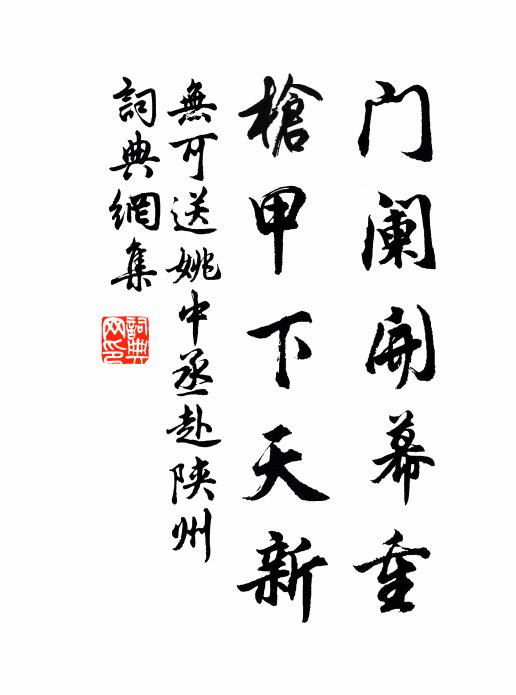 门阑开幕重
槍甲下天新
無可送姚中丞赴陕州
詞典網集
詞典网印